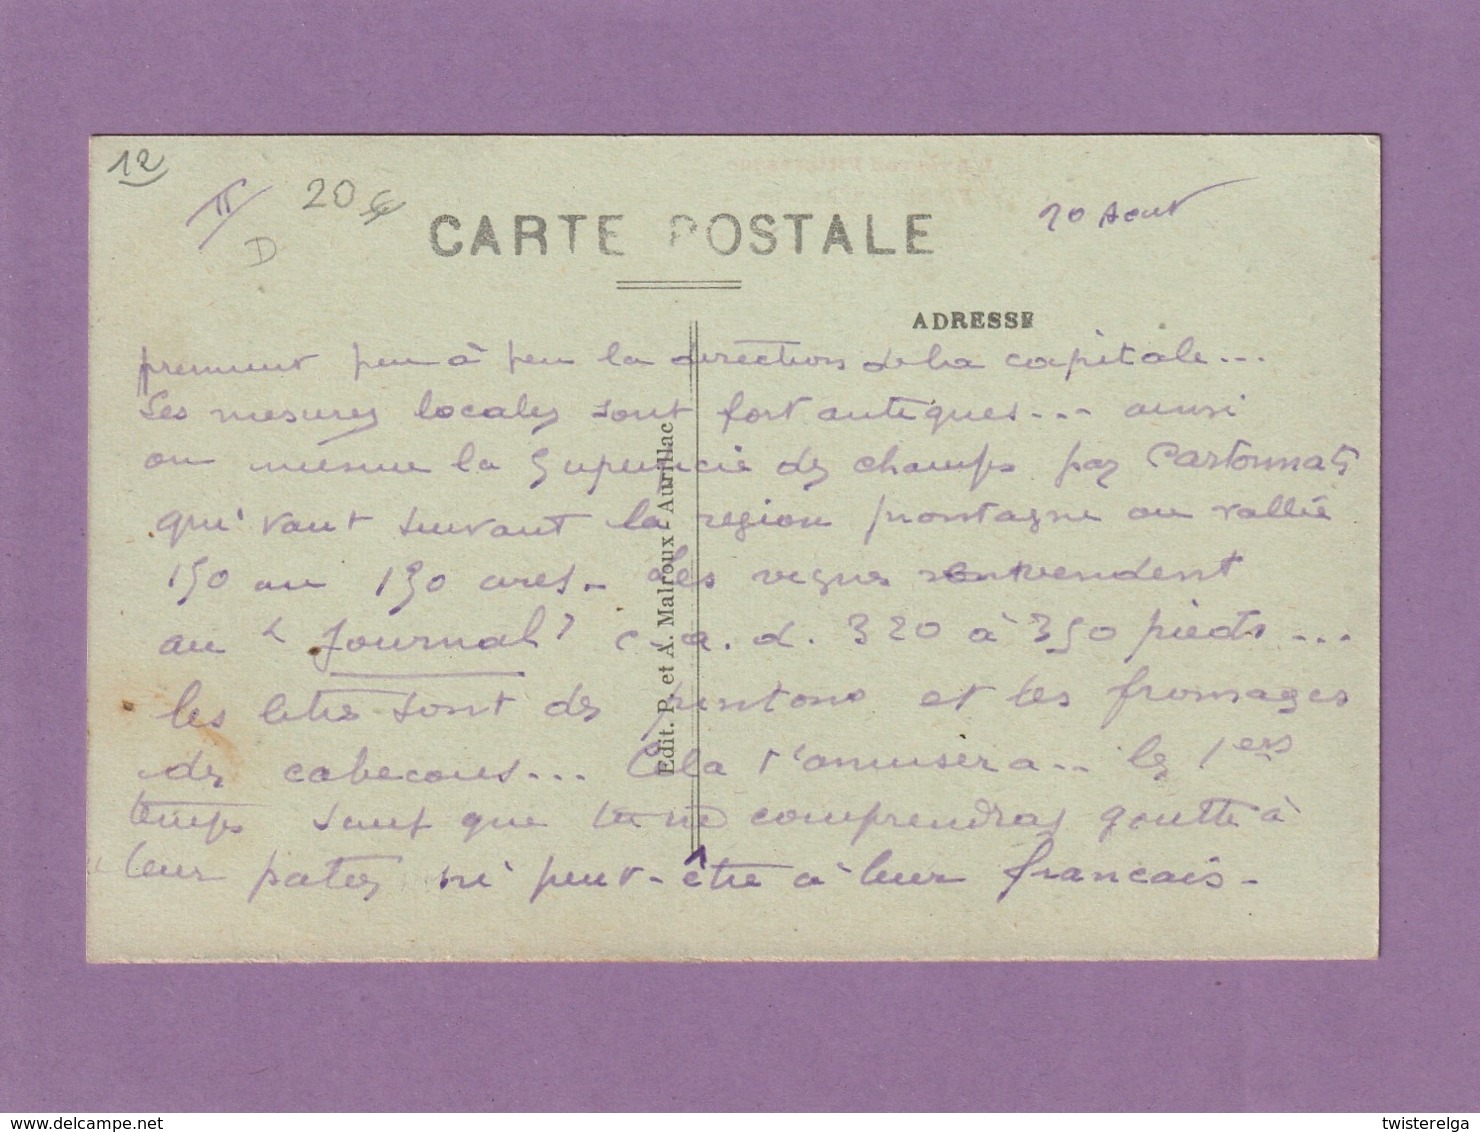 12
II 20 €
D
CARTE POSTALE
10 Aout
ADRESSE
prennent peu à peu la direction de la capitale...
Les mesures locales sont fort antiques... ainsi
on mesure la superficie des champs par Cartonnats
qui vaut suivant la région montagne ou vallée
150 ou 190 ares. Les vignes se vendent
au "Journal" c. a. d. 320 à 350 pieds...
les litres sont des pintons et les fromages
des cabecous... Cela t'amusera... les 1ers
temps sauf que tu ne comprendras goutte à
leur patois ni peut-être à leur francais.
Edit. P. et A. Malroux - Aurillac
delcampe.net
twisterelga